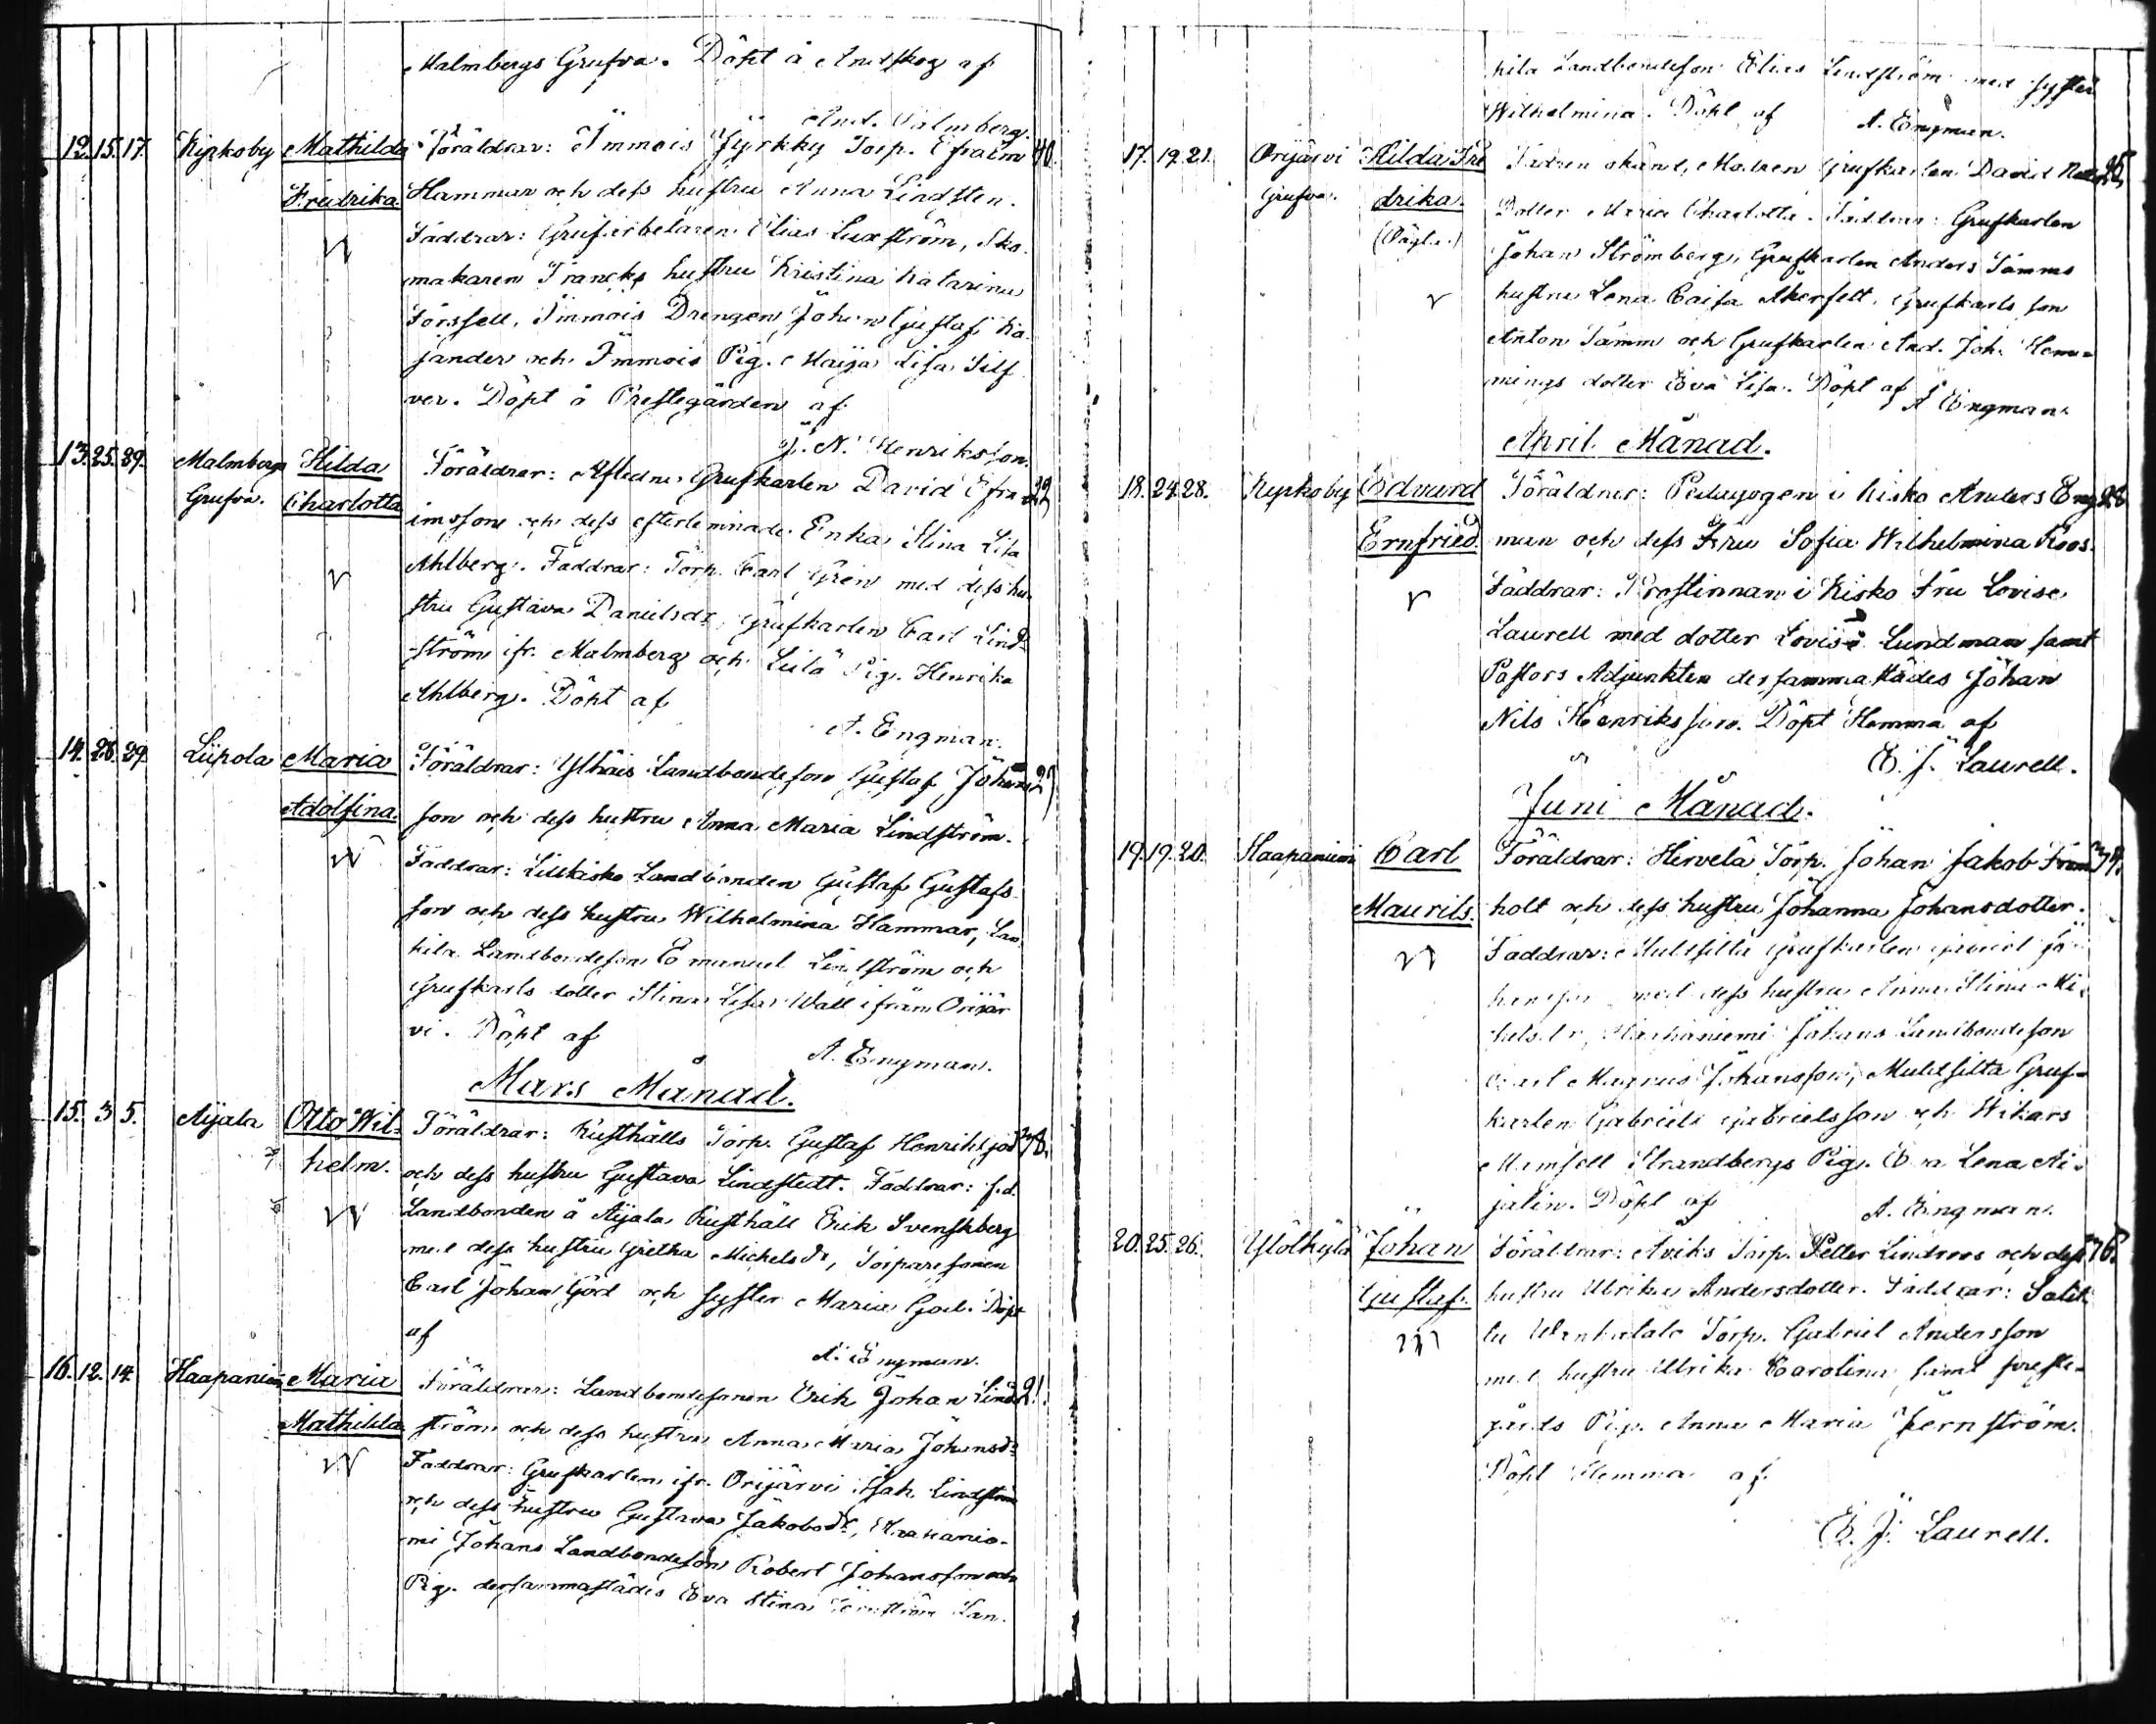 Malmbergs Grufva. Döpt å Anskog af
And. Malmberg.
12. 15. 17. Kyrkoby Mathilda Föräldrar: Immois Jyrkky Torp. Efraim 40.
Fredrika Hammar och dess hustru Anna Lindsten.
Faddrar: Grufarbetaren Elias Luxström, Sko-
makaren Francks hustru Kristina Katarina
Forssell, Immois Drengen Johan Gustaf Ka-
jander och Immois Pig. Maija Lisa Silf-
ver. Döpt å Prestegården af
J. N. Henriksson.
13. 25. 29. Malmbergs Hilda Föräldrar: Afledne Grufkarlen David Efra-
Grufva. Charlotta imsson och dess efterlemnade Enka Stina Lisa
Ahlberg. Faddrar: Torp. Carl Grén med dess hu-
stru Gustava Danielsdr, Grufkarlen Carl Lind-
ström ifr. Malmberg och Leilä Pig. Henrika
Ahlberg. Döpt af
A. Engman.
14. 28. 29. Liipola Maria Föräldrar: Ylhäis Landbondeson Gustaf Johans-
Adolfina son och dess hustru Anna Maria Lindström.
Faddrar: Lillkisko Landbonden Gustaf Gustafs-
son och dess hustru Wilhelmina Hammar, Lau-
kila Landbondeson Emanuel Lindström och
Grufkarls dotter Stina Lisa Wall ifrån Orijär-
vi. Döpt af
A. Engman.
Mars Månad.
15. 3 5. Aijala Otto Wil- Föräldrar: Rusthålls Torp. Gustaf Henrik Göd 38.
helm. och dess hustru Gustava Lindstedt. Faddrar: f.d.
Landbonden å Aijala Rusthåll Erik Svenskberg
med dess hustru Gretha Michelsdr, Torparesonen
Carl Johan Göd och syster Maria Göd. Döpt
af
A. Engman.
16. 12. 14 Haapaniemi Maria Föräldrar: Landbondesonen Erik Johan Lind- 21.
Mathilda ström och dess hustru Anna Maria Johansdr
Faddrar: Grufkarlen ifr. Orijärvi Isak Lindström
och dess hustru Gustava Jakobsdr, Haapanie-
mi Johans Landbondeson Robert Johansson och
Pig. dersammastädes Eva Stina Lau-
kila Landbondeson Elias Lindström med syster
Wilhelmina. Döpt af
A. Engman.
17. 19. 21. Orijärvi Hilda Fre- Fadren okänd, Modren Grufkarlen David
Grufva. drika. Dotter Maria Charlotta. Faddrar: Grufkarlen
(Oägta) Johan Strömberg, Grufkarlen Anders Tamms
hustru Lena Caisa Åkerfelt, Grufkarls son
Anton Tamm och Grufkarlen And. Joh. Hem-
mings dotter Eva Lisa. Döpt af
A Engman.
April Månad.
18. 24. 28. Kyrkoby Edvard Föräldrar: Pedagogen i Kisko Anders Eng- 28
Ernfried. man och dess Fru Sofia Wilhelmina Roos.
Faddrar: Prostinnan i Kisko Fru Lovisa
Laurell med dotter Lovise Lundman samt
Pastors Adjunkten dersammastädes Johan
Nils Henriksson. Döpt Hemma af
E. J. Laurell.
Juni Månad.
19. 19. 20. Haapaniemi Carl Föräldrar: Hirvelä Torp. Johan Jakob Fram- 34.
Maurits. holt och dess hustru Johanna Johansdotter.
Faddrar: Multsilta Grufkarlen Gabriel Jo-
hansson med dess hustru Anna Stina Mi-
chelsdr, Haapaniemi Johans Landbondeson
Carl Magnus Johansson, Multsilta Gruf-
karlen Gabriels Gabrielsson och Wihars
Mamsell Strandbergs Pig. Eva Lena Ai-
jalin. Döpt af
A. Engman.
20. 25. 26. Ylölkylä Johan Föräldrar: Aviks Torp. Petter Lindroos och dess 36.
Gustaf. hustru Ulrika Andersdotter. Faddrar:
Torp. Gabriel Andersson
med hustru Ulrika Carolina, samt preste-
gårds Pig. Anna Maria Jernström.
Döpt Hemma af
E. J. Laurell.